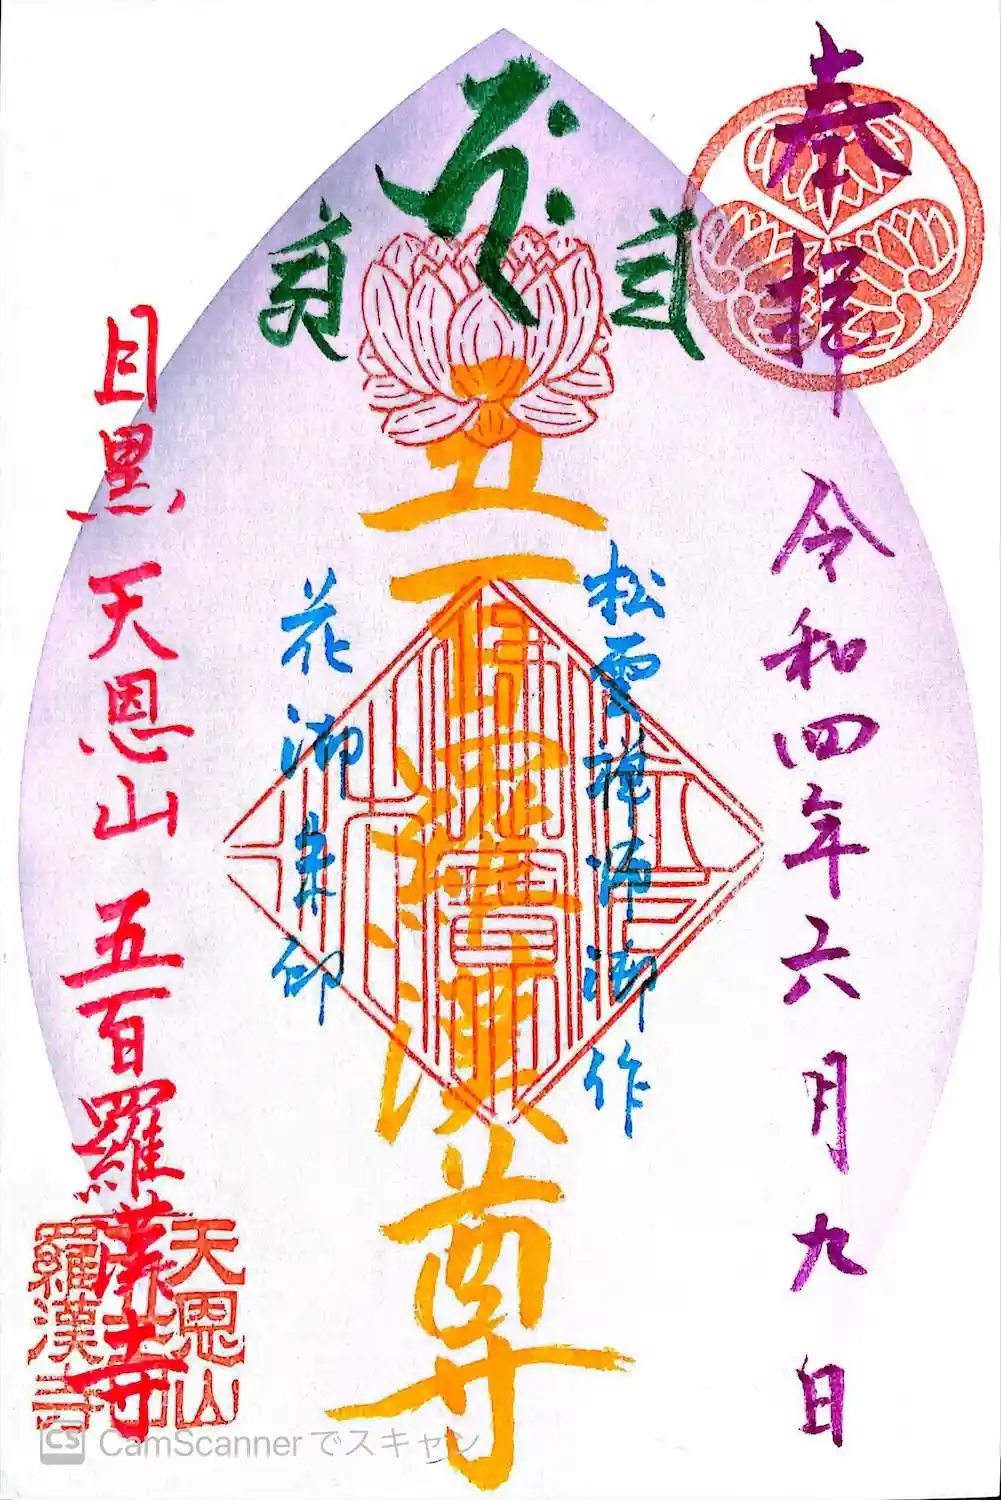 奉拝
令和四年六月九日
松雲禅師御作
五百羅漢尊
花御朱印
目黒 天恩山 五百羅漢寺
天恩山
羅漢寺
CS CamScannerでスキャン